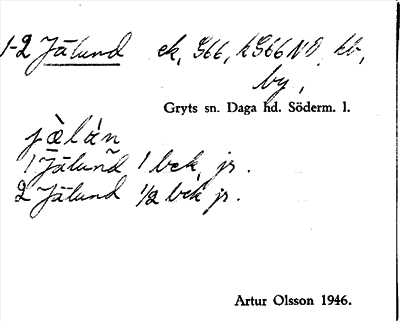 1-2 Jälund ek, G66, kG66NO, kb,
by,
Gryts sn. Daga hd. Söderm. l.
jä̀lán
1 Jälund 1 bck jr.
2 Jälund 1/2 bck jr.
Artur Olsson 1946.